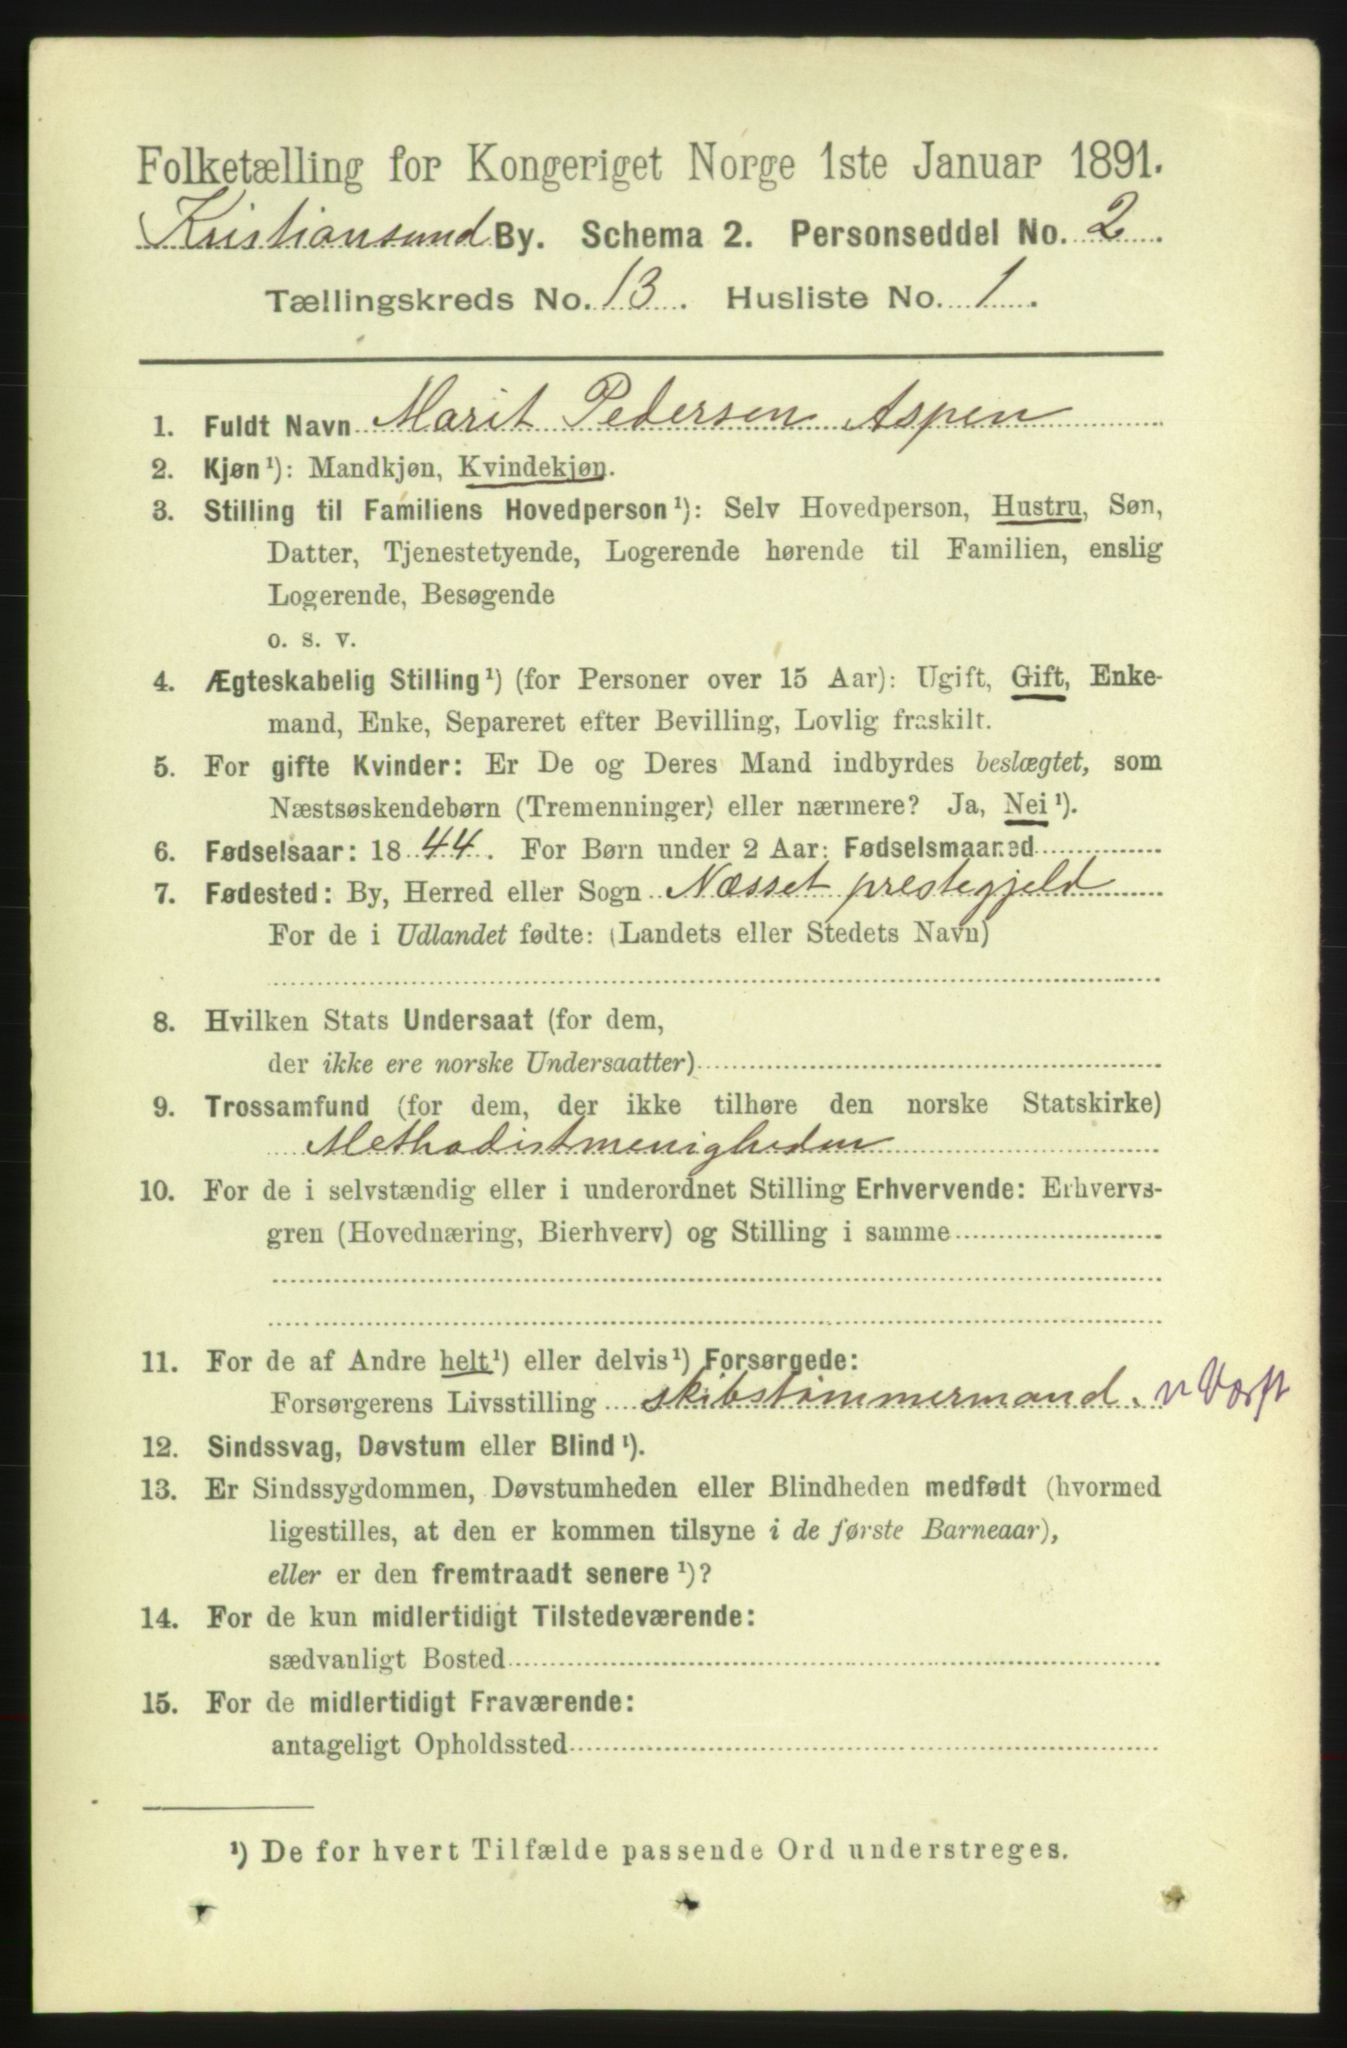 Folketælling for Kongeriget Norge 1ste Januar 1891.
Kristiansund By. Schema 2. Personseddel No. 2.
Tællingskreds No. 13. Husliste No. 1.
1. Fuldt Navn Marit Pedersen Aspen
2. Kjøn¹): Mandkjøn, Kvindekjøn.
3. Stilling til Familiens Hovedperson¹): Selv Hovedperson, Hustru, Søn,
Datter, Tjenestetyende, Logerende hørende til Familien, enslig
Logerende, Besøgende
o. s. v.
4. Ægteskabelig Stilling¹) (for Personer over 15 Aar): Ugift, Gift, Enke-
mand, Enke, Separeret efter Bevilling, Lovlig fraskilt.
5. For gifte Kvinder: Er De og Deres Mand indbyrdes beslægtet, som
Næstsøskendebørn (Tremenninger) eller nærmere? Ja, Nei¹).
6. Fødselsaar: 1844. For Børn under 2 Aar: Fødselsmaaned
7. Fødested: By, Herred eller Sogn Næsset prestegjeld
For de i Udlandet fødte: (Landets eller Stedets Navn)
8. Hvilken Stats Undersaat (for dem,
der ikke ere norske Undersaatter)
9. Trossamfund (for dem, der ikke tilhøre den norske Statskirke)
Methodistmenigheden
10. For de i selvstændig eller i underordnet Stilling Erhvervende: Erhvervs-
gren (Hovednæring, Bierhverv) og Stilling i samme
11. For de af Andre helt¹) eller delvis¹) Forsørgede:
Forsørgerens Livsstilling skibstømmermand. v Værft
12. Sindssvag, Døvstum eller Blind¹).
13. Er Sindssygdommen, Døvstumheden eller Blindheden medfødt (hvormed
ligestilles, at den er kommen tilsyne i de første Barneaar),
eller er den fremtraadt senere¹)?
14. For de kun midlertidigt Tilstedeværende:
sædvanligt Bosted
15. For de midlertidigt Fraværende:
antageligt Opholdssted
¹) De for hvert Tilfælde passende Ord understreges.